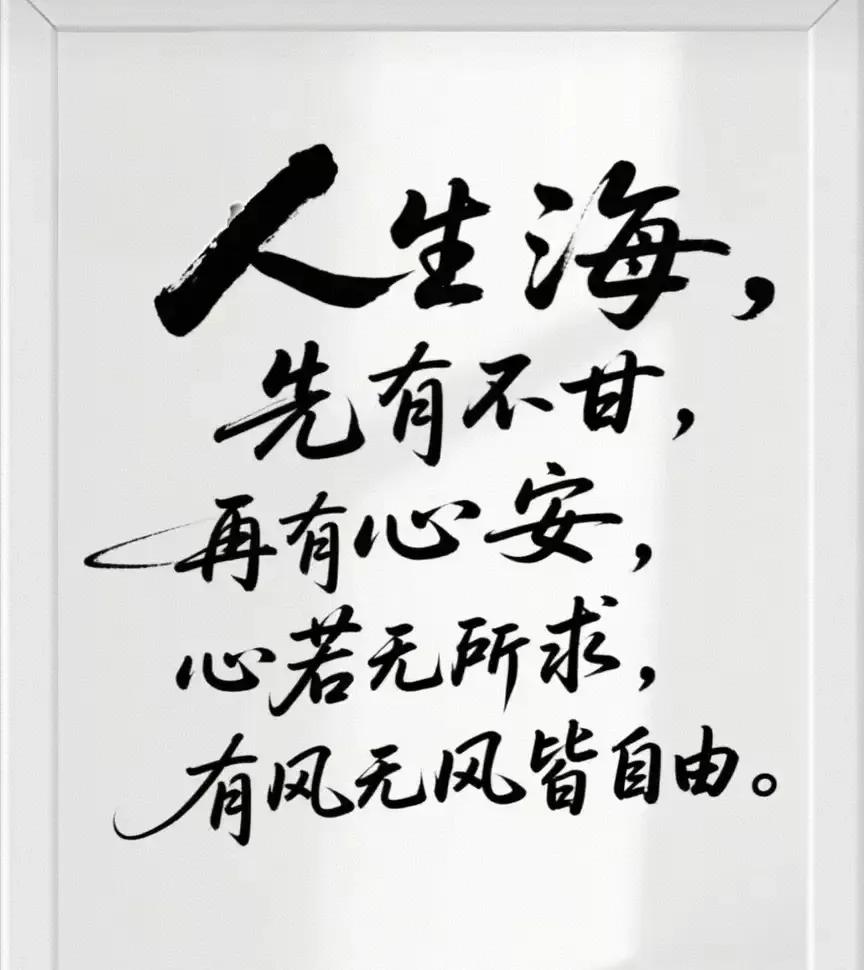 人生海，
先有不甘，
再有心安，
心若无所求，
有风无风皆自由。